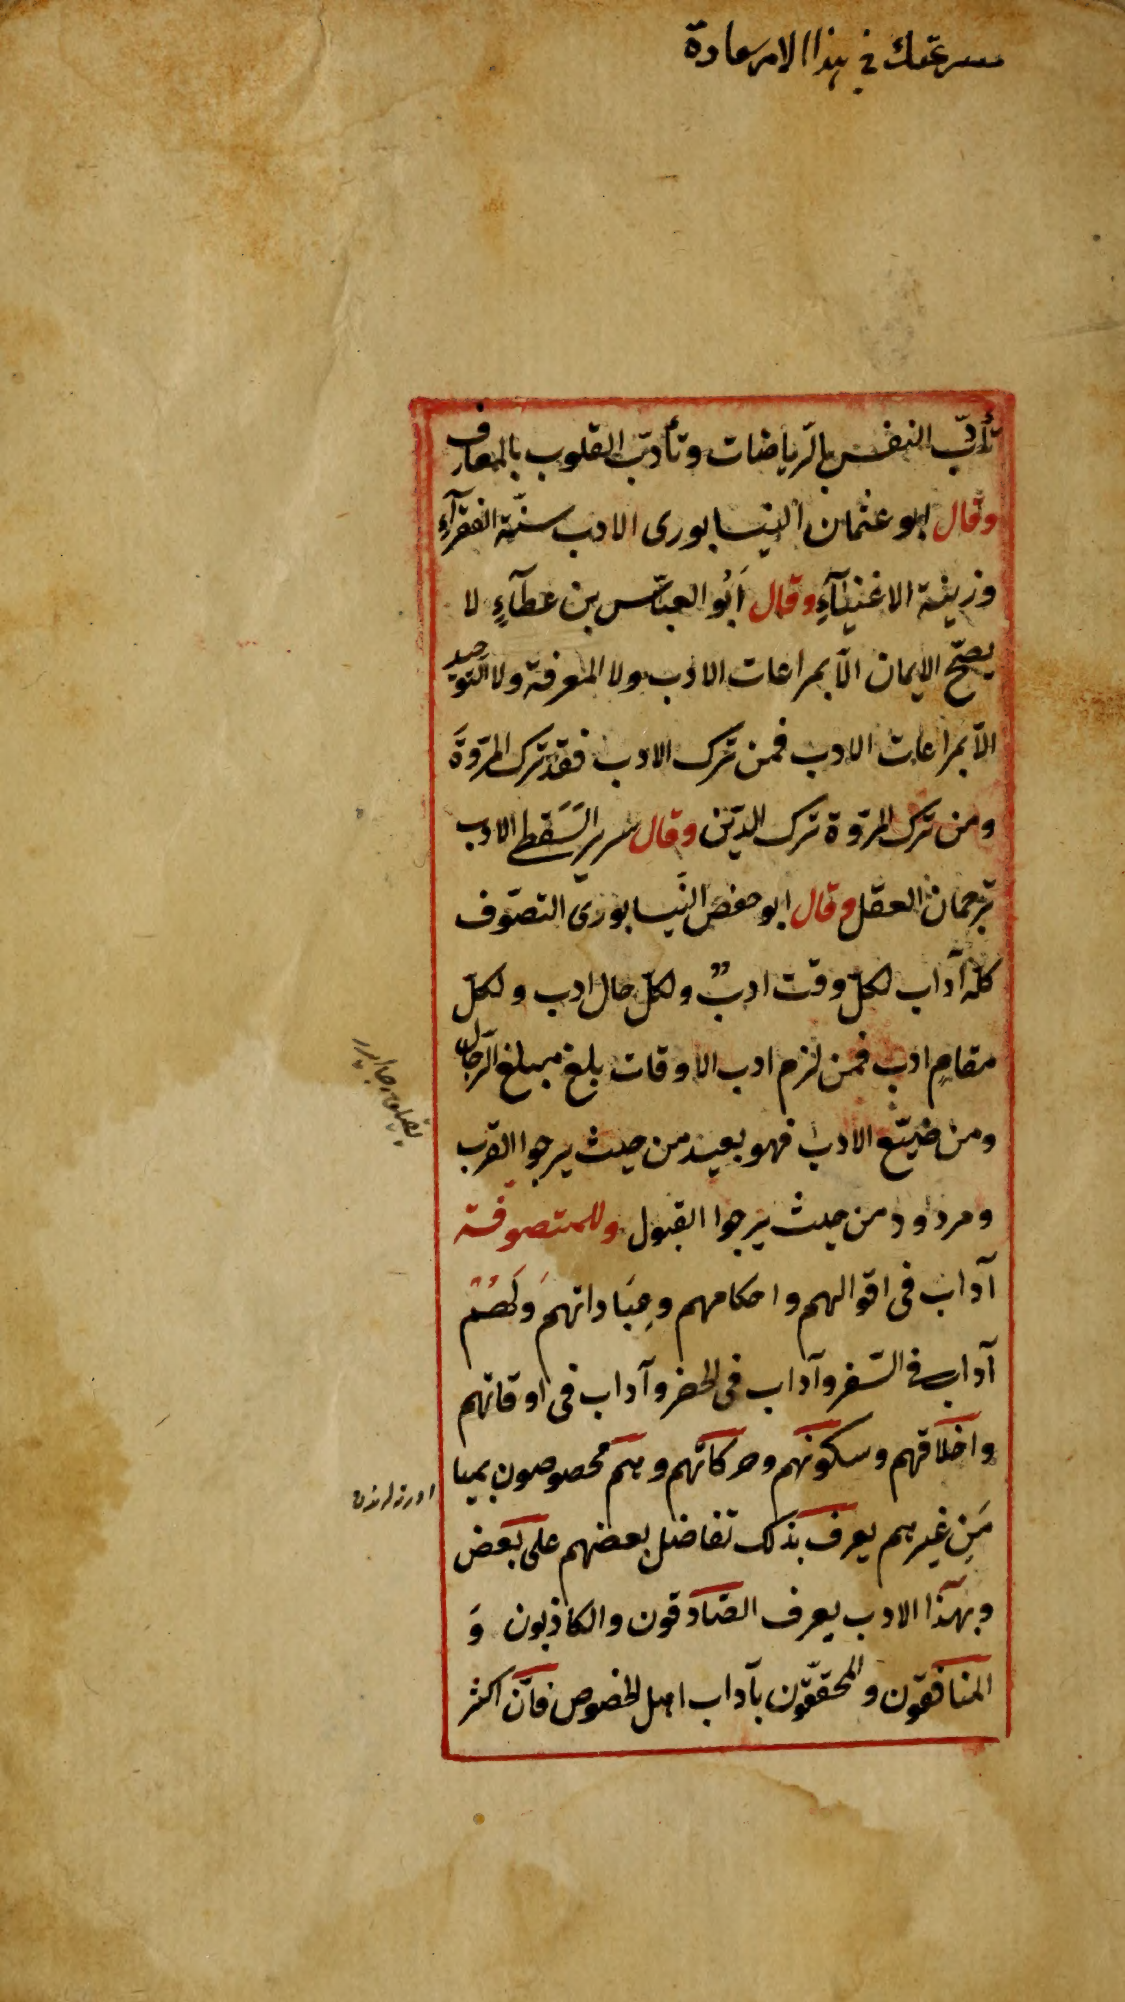 سرعتك في هذا الامر سعادة
تأدّب النفس بالرّياضات وتأدّب القلوب بالمعارف
وقال ابو عثمان النيسابورى الادب سنّة الفقرآء
وزينة الاغنيآءِ وقال اَبُو العبّاس بن عطآءٍ لا
يصحّ الايمان الّا بمراعات الادب ولا المعرفة ولا التوحيد
الّا بمراعات الادب فمن ترك الادب فقد ترك المرّوةَ
ومن ترك المرّوة ترك الدّين وقال سرير السَقطى الادب
ترجمان العقل وقال ابو حفص النّيسابورى التصّوف
كلّه آداب لكلّ وقت ادبٌ ولكلّ حال ادب ولكلّ
مقامٍ ادب فمن لزم ادب الاوقات بلغ مبلغ الرّجال
ومن ضيّع الادب فهو بعيد من حيث يرجوا القرب
ومردود من حيث يرجوا القبول وللمتصوفة
آداب فى اقوالهم واحكامهم وعِبَاداتهم وَلَهُم
آداب فى السّفر وآداب فى الحضر وآداب فى اوقاتهم
واخلاقهم وسكونهم وحركاتهم وهم مخصوصون بها
مَنِ غيرهم يعرف بذلك تفاضل بعضهم على بعض
وبهذا الادب يعرف الصّادقون والكاذبون وَ
المنافقون والمحقّقون بآداب اهل الخصوص فانّ اكثر